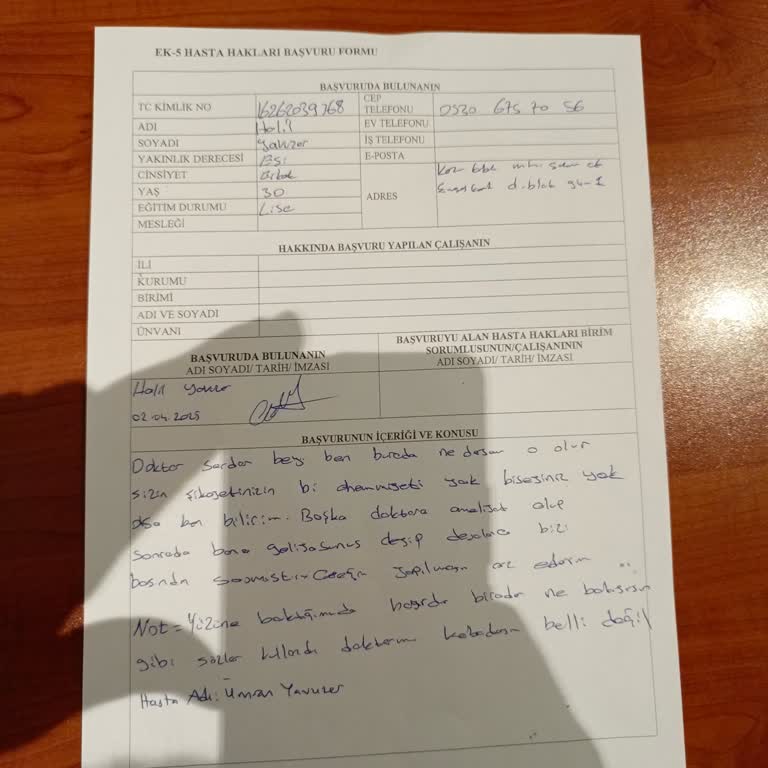 EK-5 HASTA HAKLARI BAŞVURU FORMU
BAŞVURUDA BULUNANIN
TC KİMLİK NO 16262039768
CEP TELEFONU 0530 675 70 56
ADI Halil
EV TELEFONU
SOYADI Yavuzer
İŞ TELEFONU
YAKINLIK DERECESİ Eşi
E-POSTA
CİNSİYET Erkek
YAŞ 30
ADRES
EĞİTİM DURUMU Lise
d.blok
MESLEĞİ
HAKKINDA BAŞVURU YAPILAN ÇALIŞANIN
İLİ
KURUMU
BİRİMİ
ADI VE SOYADI
ÜNVANI
BAŞVURUDA BULUNANIN
ADI SOYADI/ TARİH/ İMZASI
BAŞVURUYU ALAN HASTA HAKLARI BİRİM
SORUMLUSUNUN/ÇALIŞANININ
ADI SOYADI/ TARİH/ İMZASI
Halil Yavuzer
02.04.2025
BAŞVURUNUN İÇERİĞİ VE KONUSU
Doktor Serdar bey ben burada ne desem o olur
sizin şikayetinizin bi ehemmiyeti yok bişeyiniz yok
ben bilirim. Başka doktora ameliyat olup
sonrada bana geliyosunuz deyip bizi
başından yapılmasını arz ederim
Not = Yüzüne baktığımda hayırdır birader ne bakıyosun
gibi sözler kullandı doktormu kabadayımı belli değil
Hasta Adı: Ümran Yavuzer